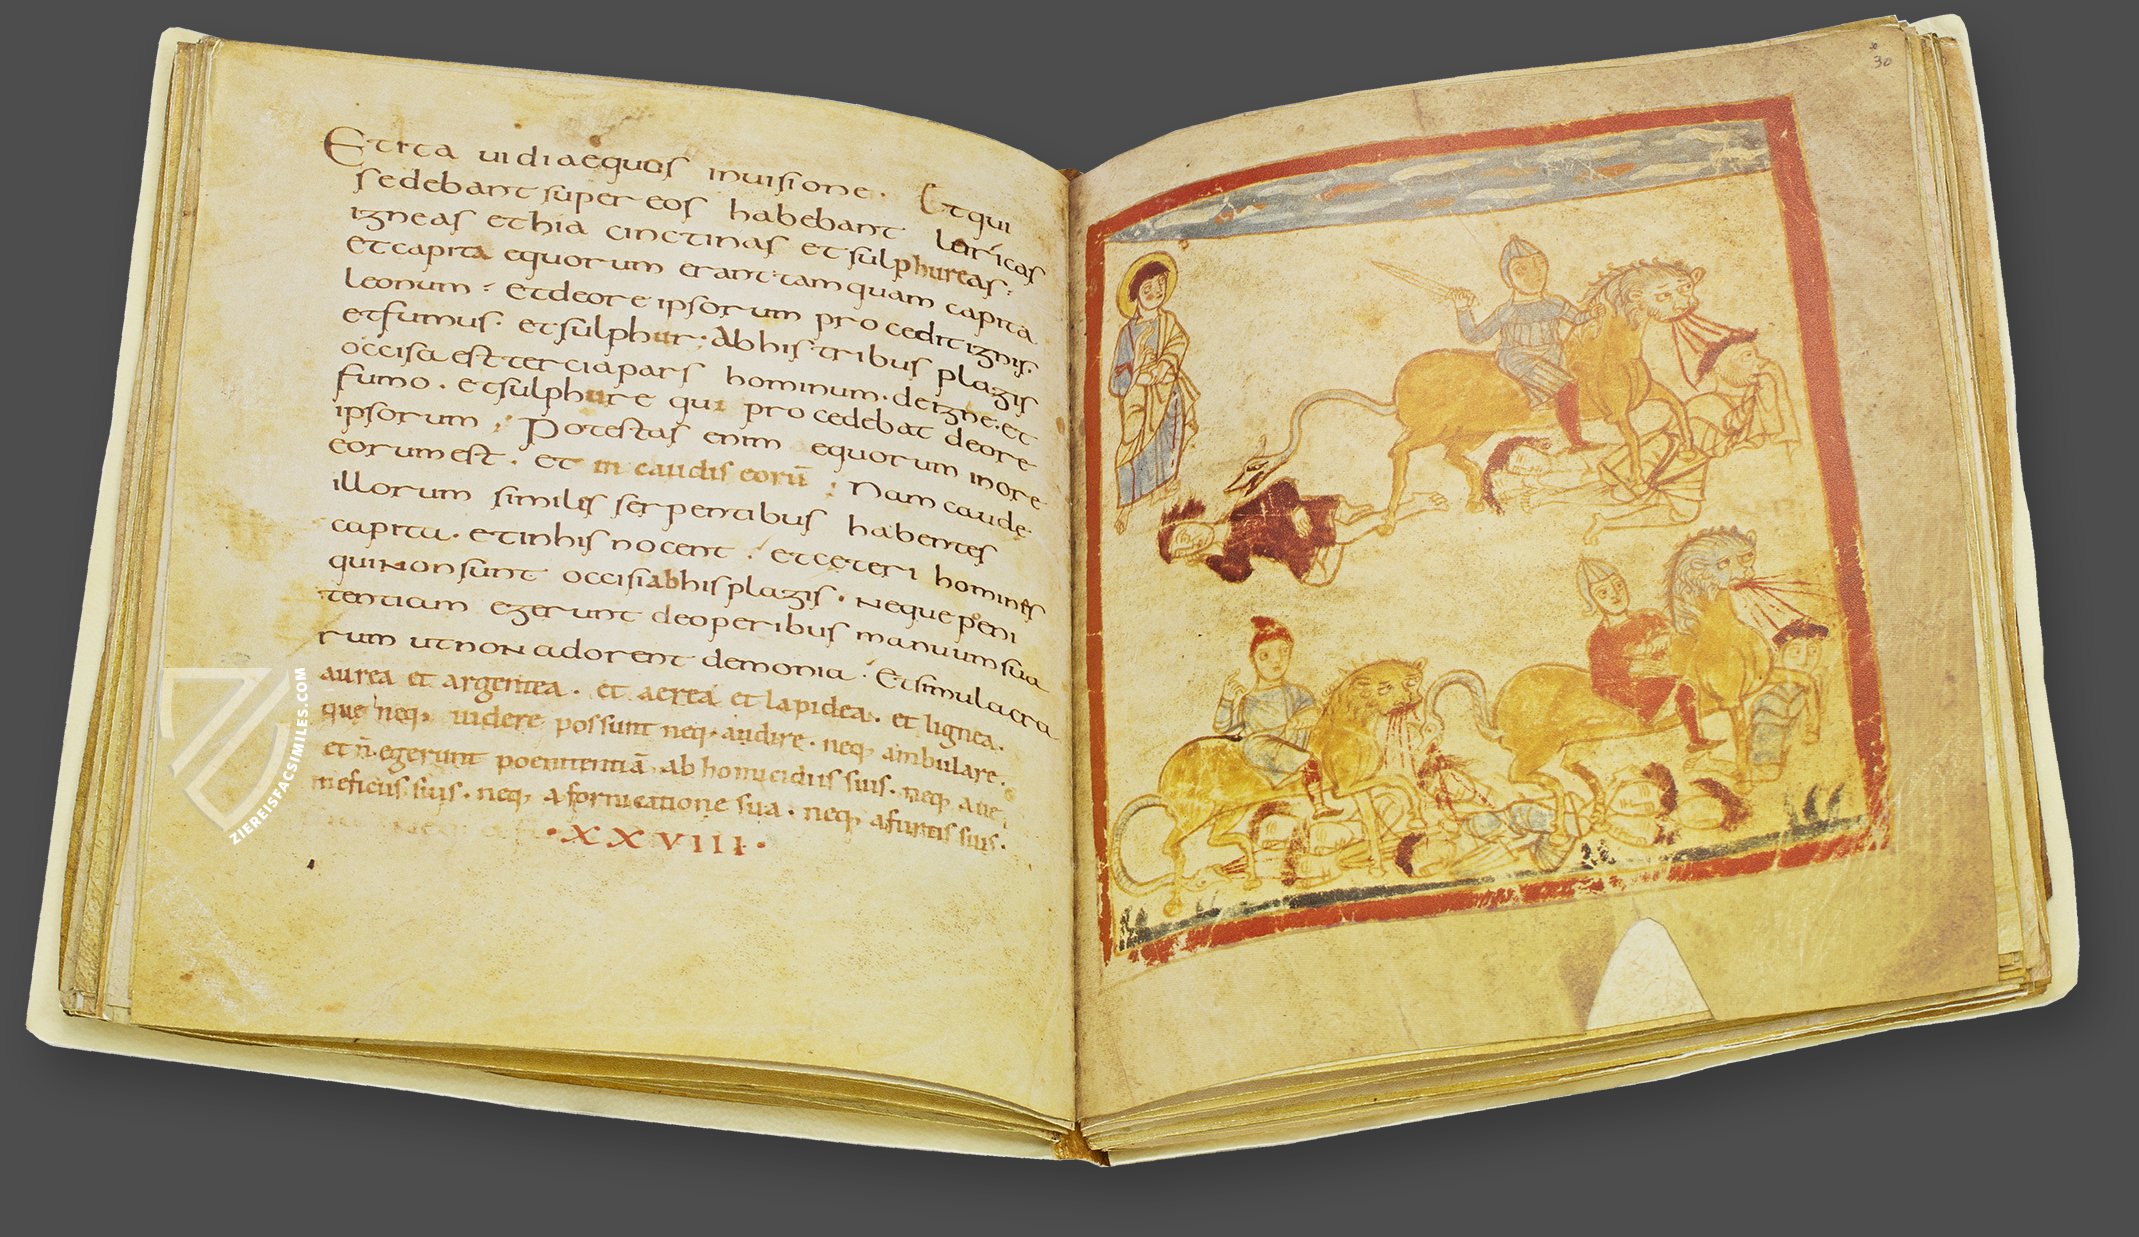 Et ita uidi aequos inuisione. Et qui
sedebant super eos habebant loricas
igneas et hia cinctinas et sulphureas:
et capita equorum erant tamquam capita
leonum: et deore ipsorum procedit ignis.
et fumus. et sulphur. Ab his tribus plagis
occisa est tercia pars hominum. de igne. et
fumo. et sulphure qui procedebat deore
ipsorum; Potestas enim equorum inore
eorum est. et in caudis eorū; Nam caudę
illorum similes serpentibus habentes
capita. et inhis nocent. et cęteri homines
qui non sunt occisi abhis plagis. neque pęni
tentiam egerunt deoperibus manuum sua
rum ut non adorent demonia. Et simulacra
aurea et argentea. et aerea et lapidea. et lignea.
que neq; uidere possunt neq; audire. neq; ambulare.
et n̄ egerunt poenitentiā ab homicidiis suis. neq; aue
neficiis suis. neq; a fornicatione sua. neq; afurtis suis.
.XXVIII.
30
ZIEREISFACSIMILES.COM